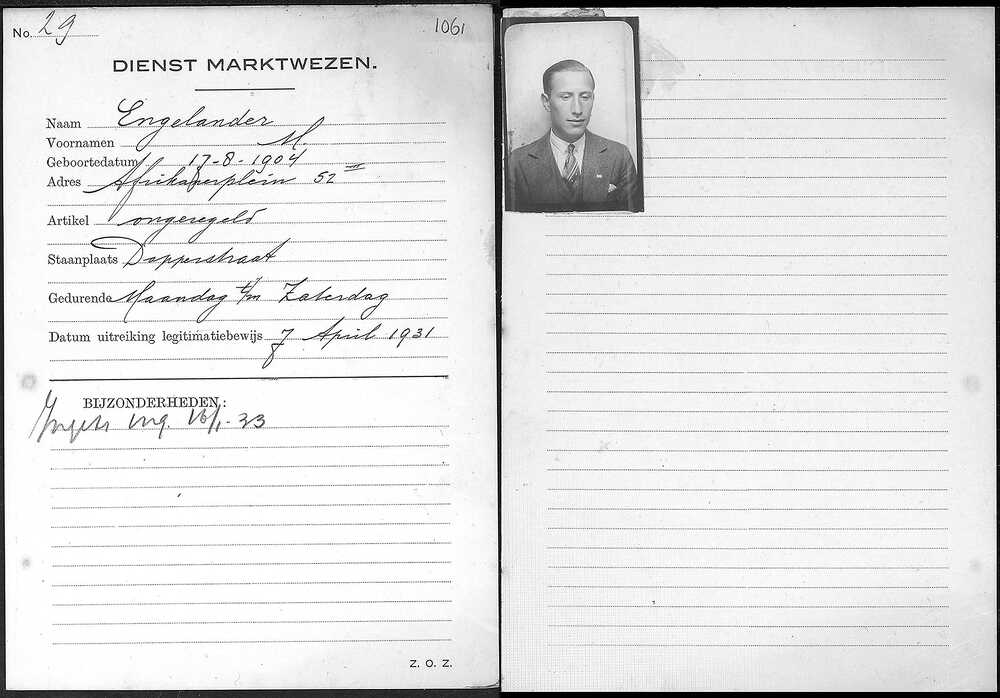 No. 29
1061
DIENST MARKTWEZEN.
Naam Engelander
Voornamen M.
Geboortedatum 17-8-1904
Adres Afrikanerplein 52 II
Artikel ongeregeld
Staanplaats Dapperstraat
Gedurende Maandag t/m Zaterdag
Datum uitreiking legitimatiebewijs 7 April 1931
BIJZONDERHEDEN:
ing. 16/1-33
Z. O. Z.